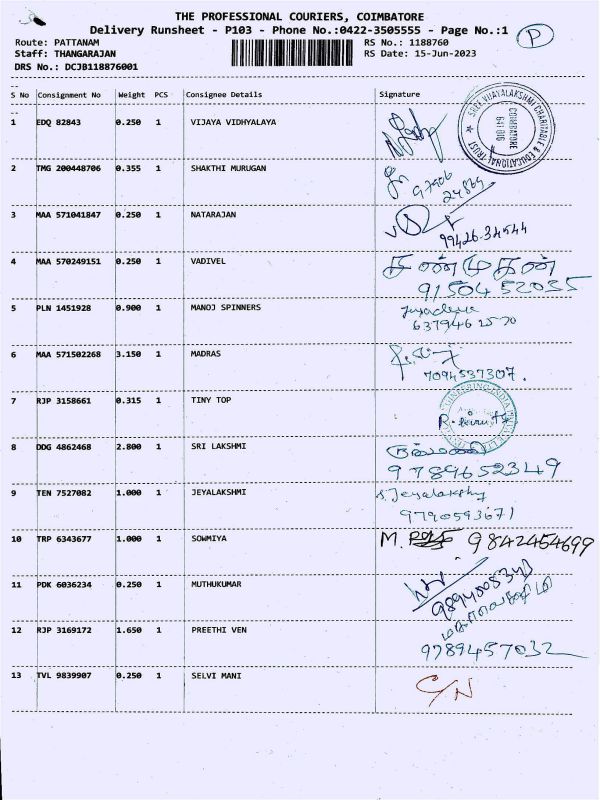 THE PROFESSIONAL COURIERS, COIMBATORE
Delivery Runsheet - P103 - Phone No.:0422-3505555 - Page No.:1
P
Route: PATTANAM
RS No.: 1188760
Staff: THANGARAJAN
RS Date: 15-Jun-2023
DRS No.: DCJB118876001
S No Consignment No Weight PCS Consignee Details Signature
1 EDQ 82843 0.250 1 VIJAYA VIDHYALAYA
SREE VIJAYALAKSHMI CHARITABLE & EDUCATIONAL TRUST
COIMBATORE
2 TMG 200448706 0.355 1 SHAKTHI MURUGAN
97906
24864
3 MAA 571041847 0.250 1 NATARAJAN
99426-34544
4 MAA 570249151 0.250 1 VADIVEL
சண்முகன்
9150452035
5 PLN 1451928 0.900 1 MANOJ SPINNERS
6 MAA 571502268 3.150 1 MADRAS
7094537307.
7 RJP 3158661 0.315 1 TINY TOP
8 DDG 4862468 2.800 1 SRI LAKSHMI
9789652349
9 TEN 7527082 1.000 1 JEYALAKSHMI
S. Jeyalakshmy
9790593671
10 TRP 6343677 1.000 1 SOWMIYA
M. 9842454699
11 PDK 6036234 0.250 1 MUTHUKUMAR
12 RJP 3169172 1.650 1 PREETHI VEN
9789457032
13 TVL 9839907 0.250 1 SELVI MANI
C/N